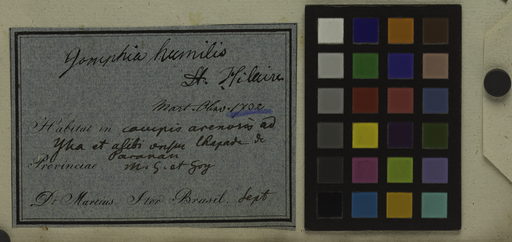 Gomphia humilis
St. Hilaire
Mart. Obs. 1702
Habitat in campis arenosis ad
Yha et alibi
Paranan
Provinciae M. G. et Goy
Dr. Martius. Iter Brasil. Sept